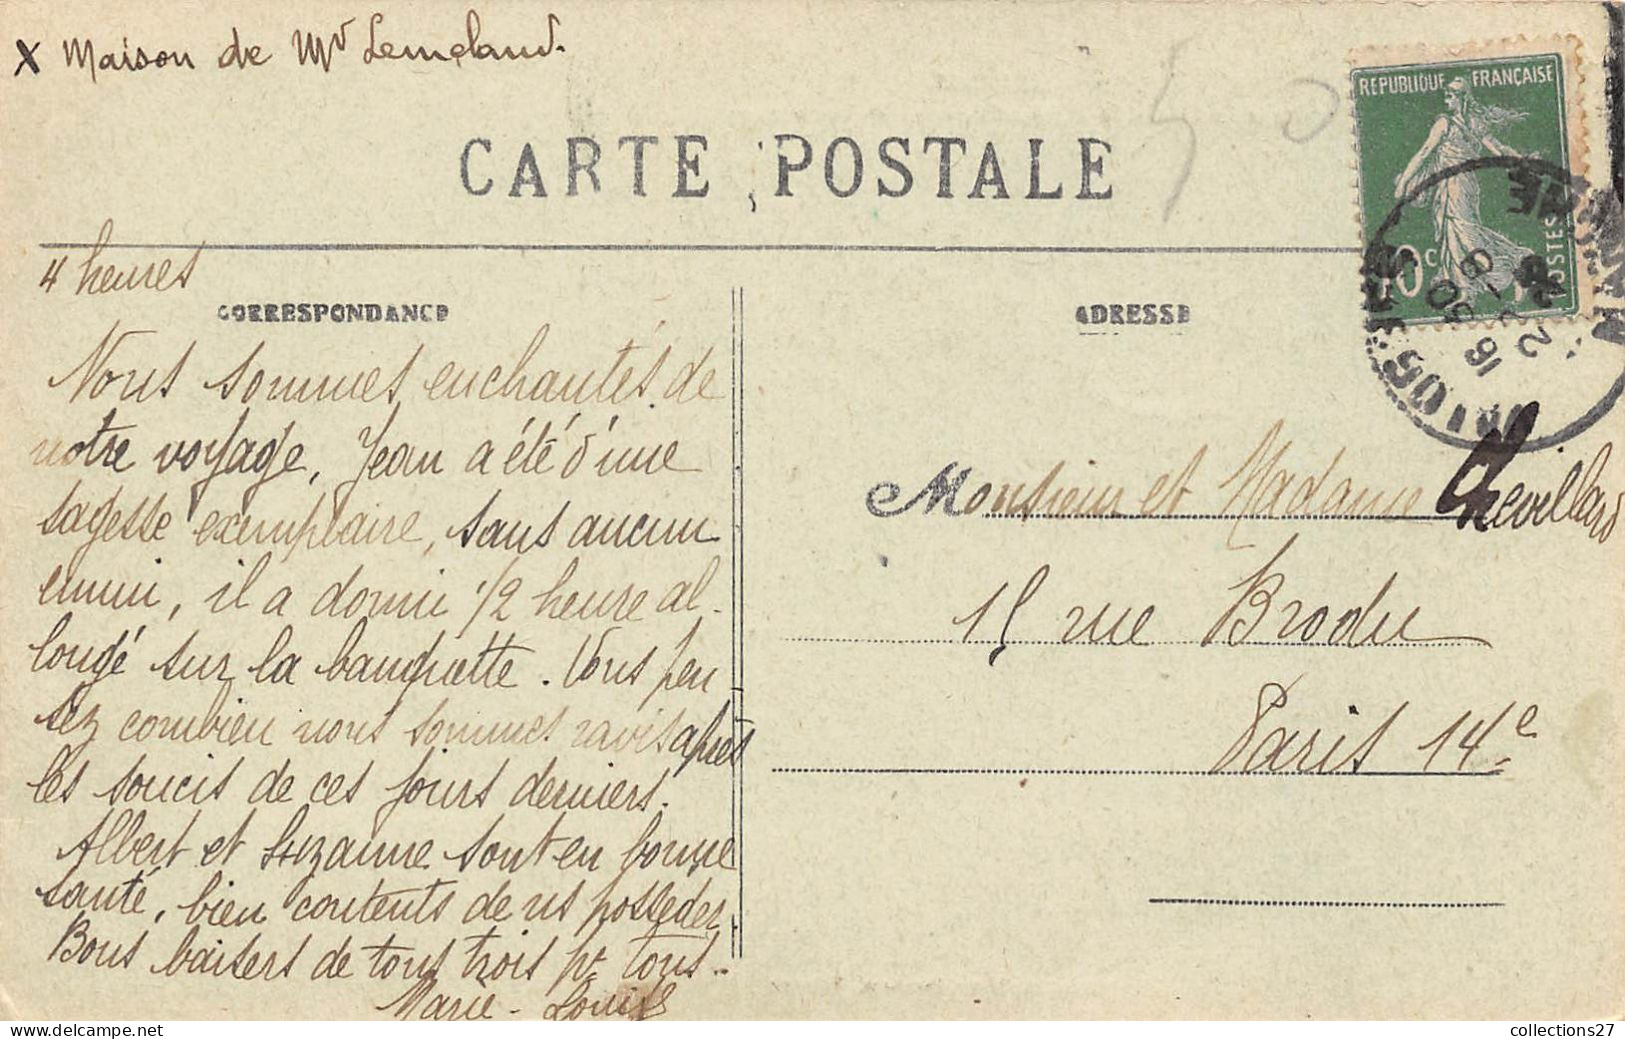 x Maison de Mr Lemeland.
CARTE POSTALE
REPUBLIQUE FRANÇAISE
10c
POSTES
4 heures
CORRESPONDANCE
ADRESSE
Nous sommes enchantés de
notre voyage, Jean a été d'une
sagesse exemplaire, sans aucun
ennui, il a dormi 1/2 heure al-
longé sur la banquette. Vous pen
sez combien nous sommes ravis après
les soucis de ces jours derniers.
Albert et Suzanne sont en bonne
santé, bien contents de ns posseder.
Bons baisers de tous trois pr tous.
Marie-Louise
Monsieur et Madame Chevillard
15 rue Brodu
Paris 14e
collections27